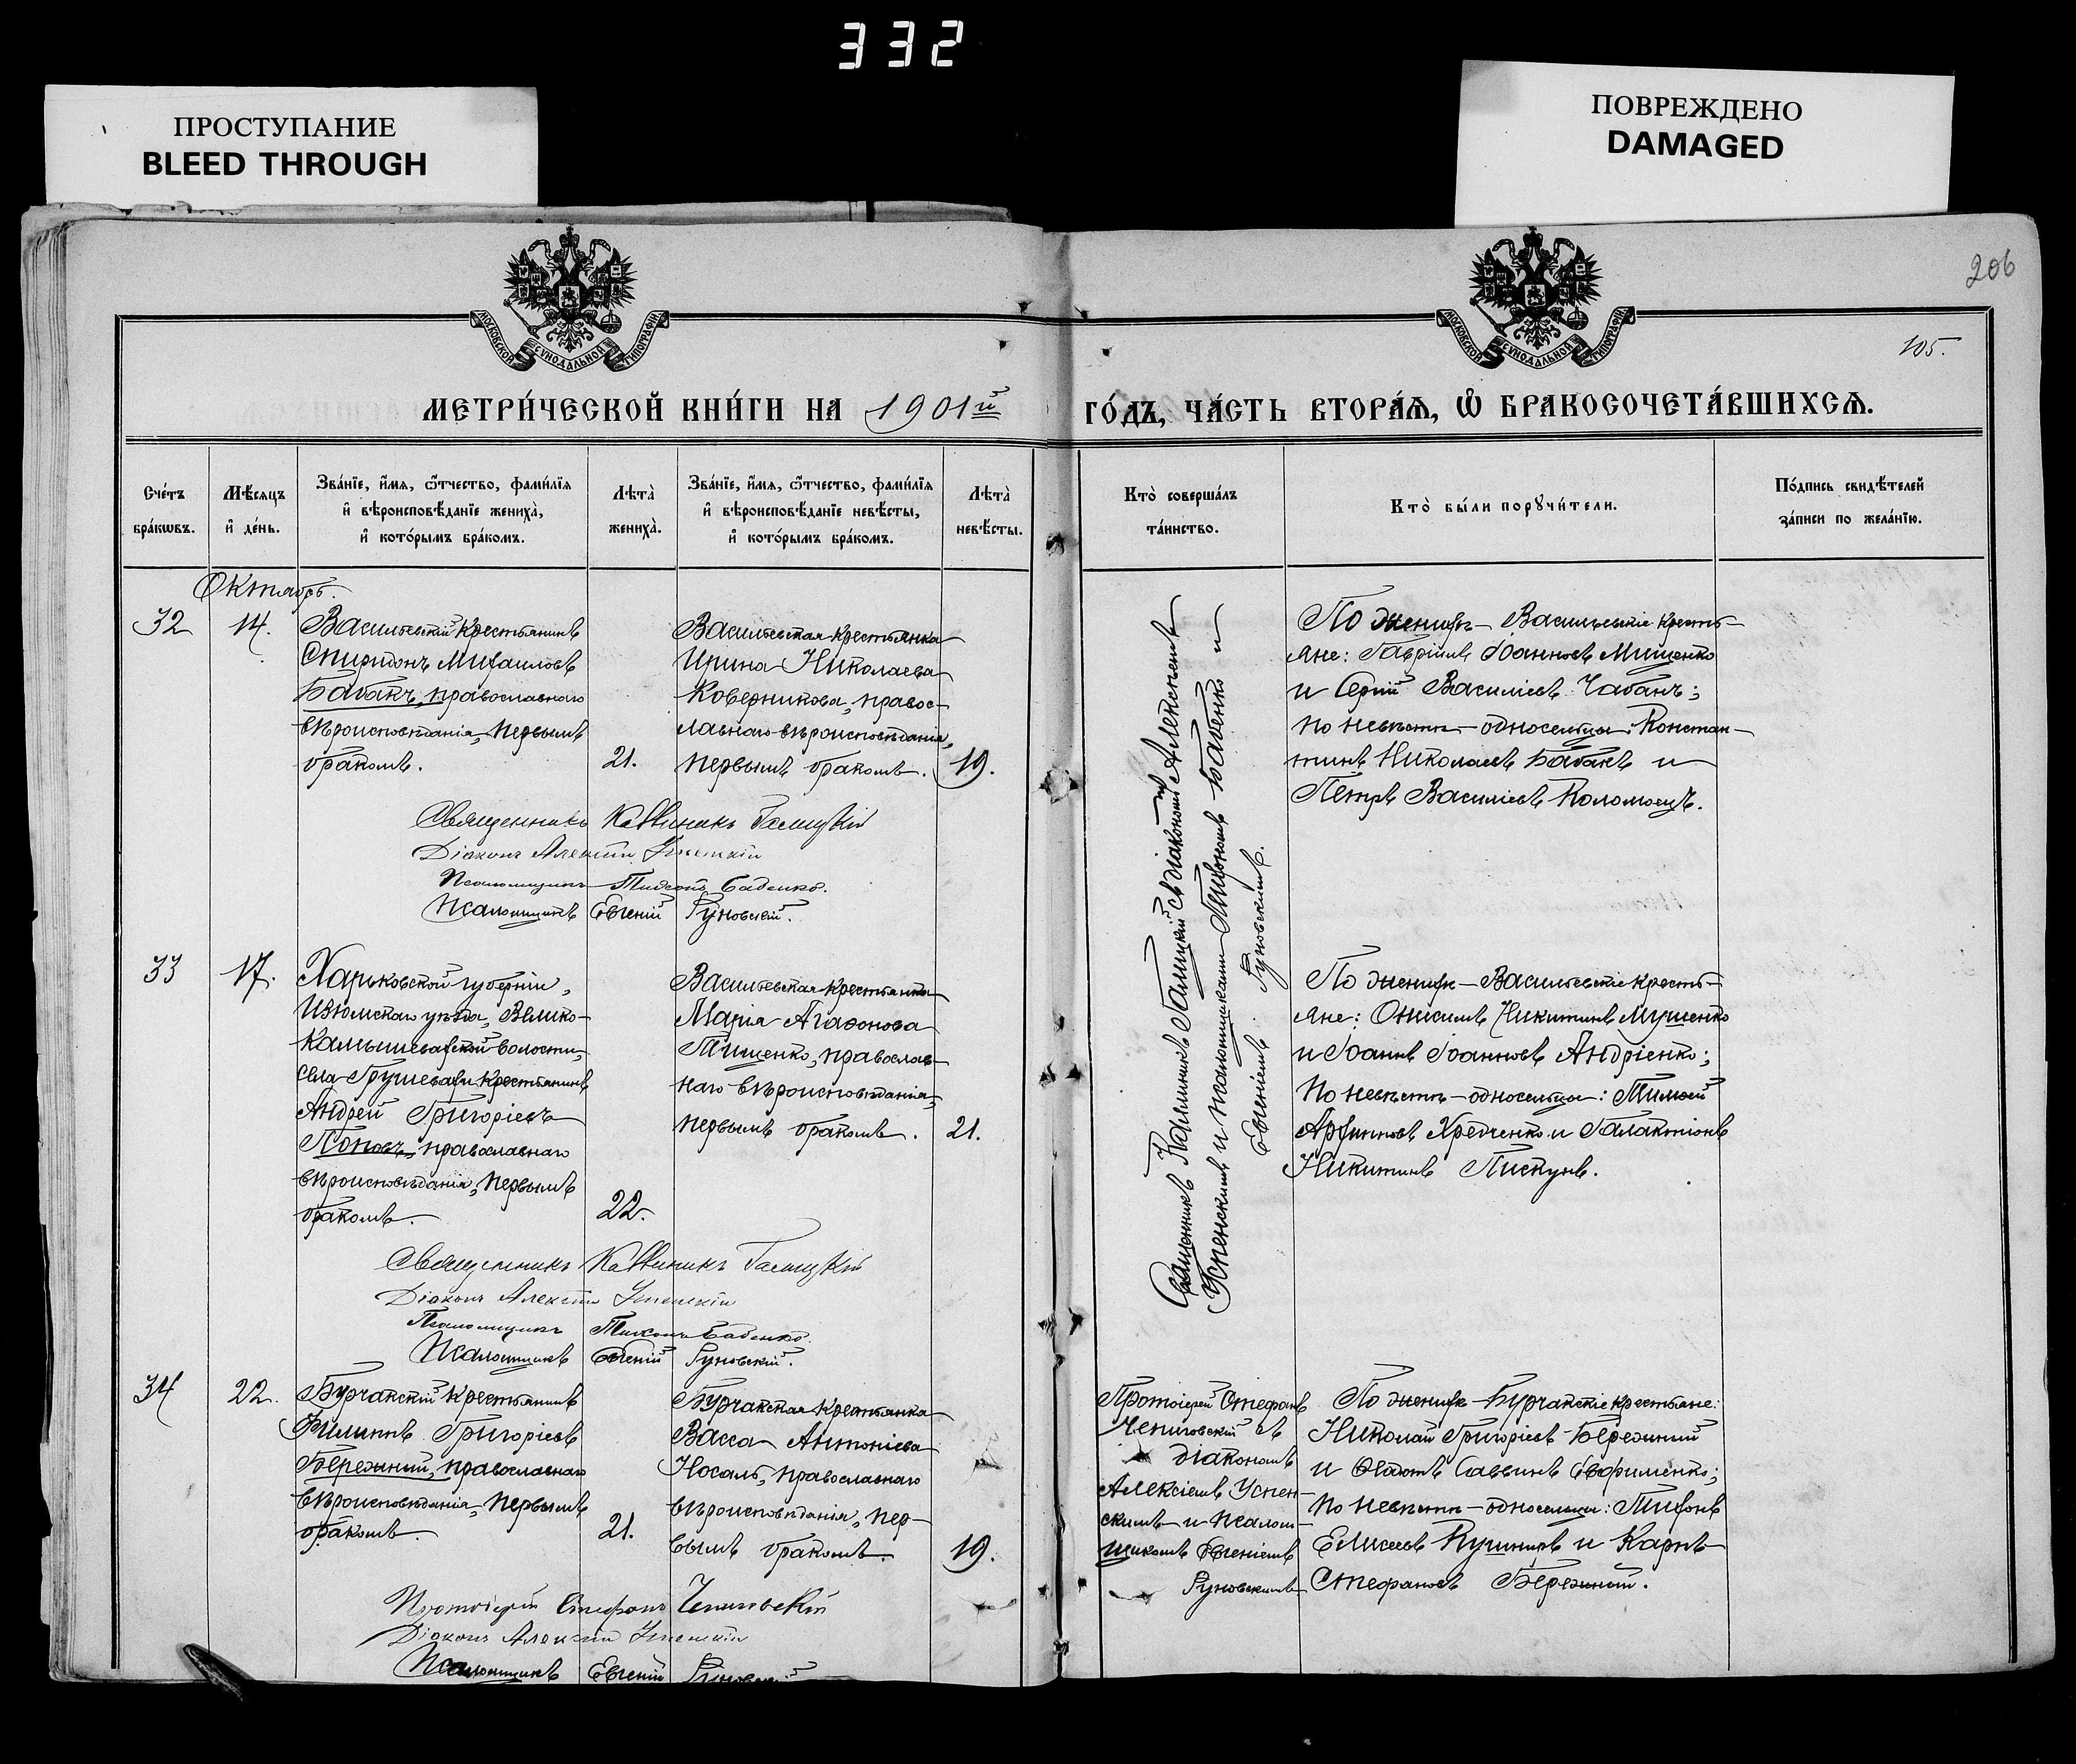 332
ПРОСТУПАНИЕ
BLEED THROUGH
ПОВРЕЖДЕНО
DAMAGED
206
105.
МОСКОВСКОЙ СѴНОДАЛЬНОЙ ТИПОГРАФІИ
МОСКОВСКОЙ СѴНОДАЛЬНОЙ ТИПОГРАФІИ
МЕТРИ́ЧЕСКОЙ КНИ́ГИ НА 1901й
ГО́ДЪ, ЧА́СТЬ ВТОРА́Ѧ, Ѽ БРАКОСОЧЕТА́ВШИХСѦ.
Сче́тъ
бра́кѡвъ.
Мѣ́сѧцъ
и҆ де́нь.
Зва́нїе, и҆́мѧ, ѻ҆́тчество, фами́лїѧ
и҆ вѣроисповѣ́данїе жениха̀,
и҆ кото́рымъ бра́комъ.
Лѣ́та̀
жениха̀.
Зва́нїе, и҆́мѧ, ѻ҆́тчество, фами́лїѧ
и҆ вѣроисповѣ́данїе невѣ́сты,
и҆ кото́рымъ бра́комъ.
Лѣ́та̀
невѣ́сты.
Кто̀ соверша́лъ
та́инство.
Кто̀ бы́ли порꙋчи́тели.
По́дпись свидѣ́телей
за́писи по жела́нїю.
Октябрь.
32
14.
Васильевскій крестьянинъ
Спиридонъ Михаиловъ
Бабакъ, православнаго
вѣроисповѣданія, первымъ
бракомъ.
21.
Васильевская крестьянка
Ирина Николаева
Коверникова, правос-
лавнаго вѣроисповѣданія,
первымъ бракомъ.
19.
Священникъ Каллиникъ Галицкій съ діакономъ Алексіемъ
Успенскимъ и псаломщиками Тихономъ Бабенко и
Евгеніемъ Гуновскимъ.
По женихѣ – Васильевскіе кресть-
яне: Гавріилъ Іоанновъ Мищенко
и Сергій Василіевъ Чабанъ;
по невѣстѣ – односельцы: Констан-
тинъ Николаевъ Бабакъ и
Петръ Василіевъ Коломоецъ.
Священникъ Каллиникъ Галицкій
Діаконъ Алексій Успенскій
Псаломщикъ Тихонъ Бабенко.
Псаломщикъ Евгеній Гуновскій.
33
17.
Харьковской губерніи,
Изюмскаго уѣзда, Велико-
Камышевахской волости,
села Грушевахи крестьянинъ
Андрей Григорьевъ
Поповъ, православнаго
вѣроисповѣданія, первымъ
бракомъ.
22.
Васильевская крестьянка
Марія Агаѳонова
Тищенко, православ-
наго вѣроисповѣданія,
первымъ бракомъ.
21.
По женихѣ – Васильевскіе кресть-
яне: Онисимъ Никитинъ
и Іоаннъ Іоанновъ Андріенко;
по невѣстѣ – односельцы: Тимоѳей
Архиповъ и Галактіонъ
Никитинъ Пискунъ.
Священникъ Каллиникъ Галицкій
Діаконъ Алексій Успенскій
Псаломщикъ Тихонъ Бабенко.
Псаломщикъ Евгеній Гуновскій.
34
22.
Бурчакскій крестьянинъ
Филиппъ Григоріевъ
Бережный, православнаго
вѣроисповѣданія, первымъ
бракомъ.
21.
Бурчакская крестьянка
Васса Антоніева
Носаль, православнаго
вѣроисповѣданія, пер-
вымъ бракомъ.
19.
Протоіерей Стефанъ
Чепиговскій съ
діакономъ
Алексіемъ Успен-
скимъ и псалом-
щикомъ Евгеніемъ
Гуновскимъ
По женихѣ – Бурчакскіе крестьяне:
Николай Григоріевъ Бережный
и Саввинъ Ефименко;
по невѣстѣ – односельцы: Тихонъ
Елисеевъ Кушниръ и Карпъ
Стефановъ Бережный.
Протоіерей Стефанъ Чепиговскій
Діаконъ Алексій Успенскій
Псаломщикъ Евгеній Гуновскій